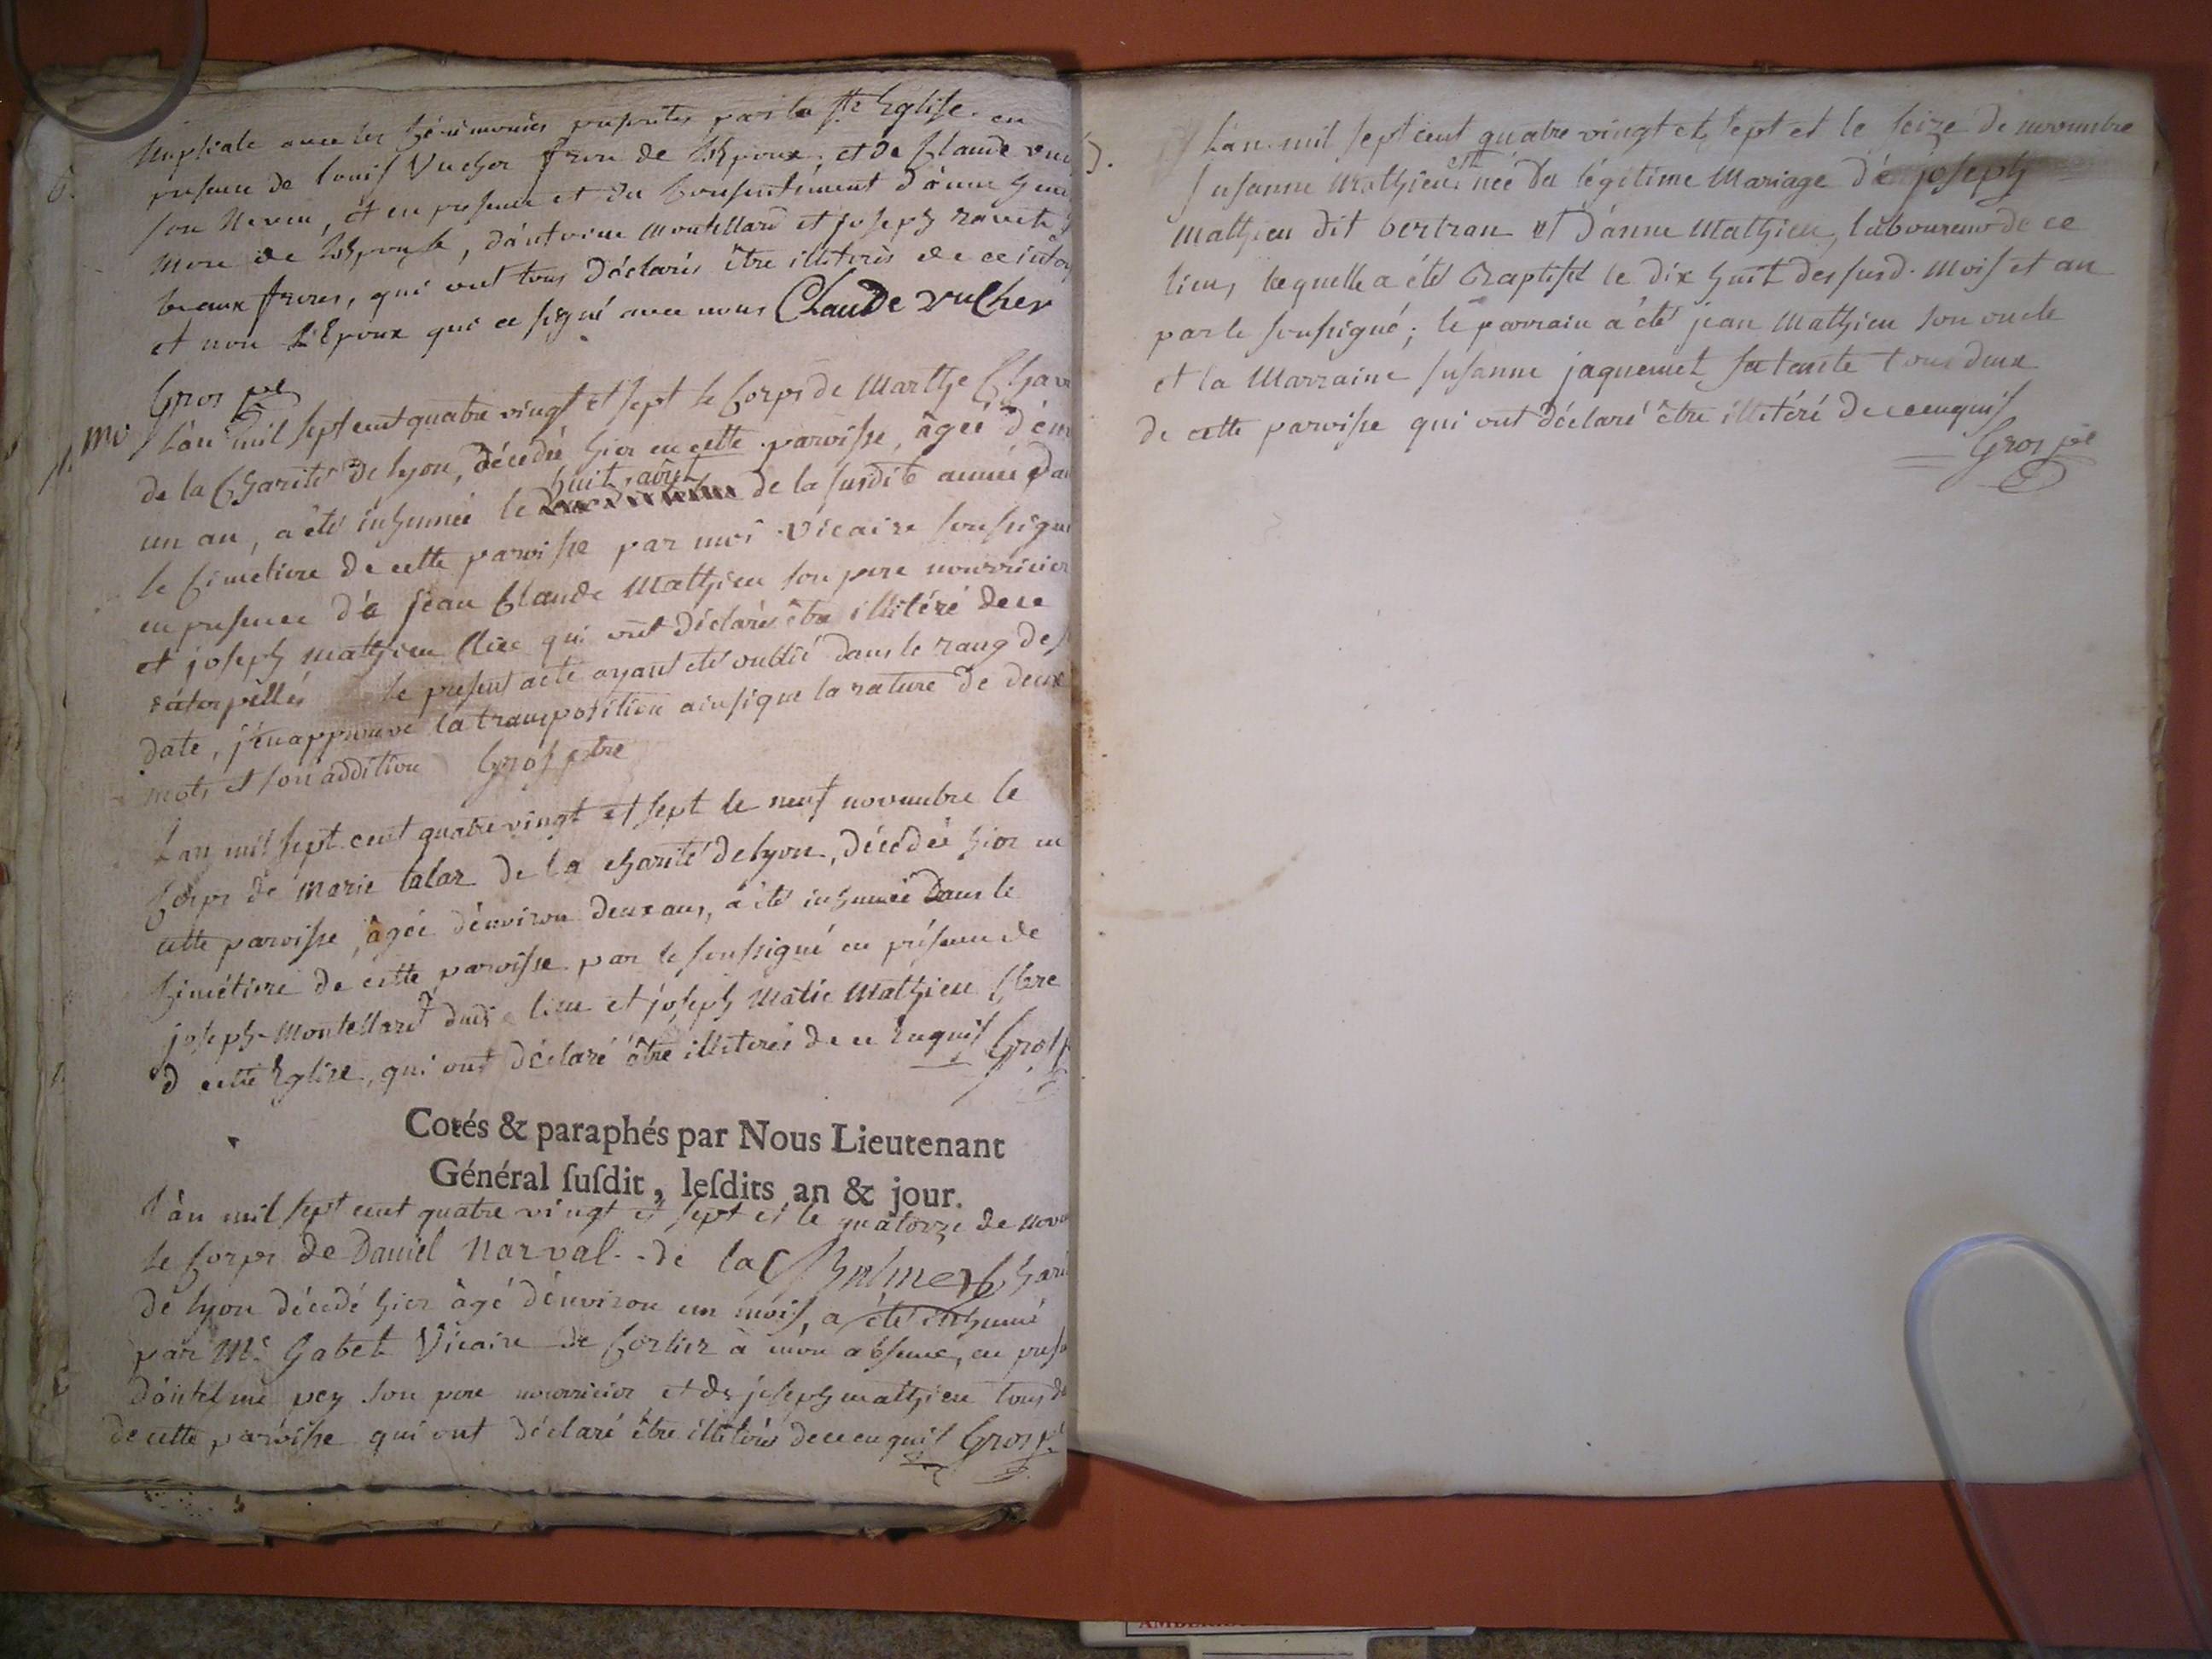 nuptiale avec les Cérémonies prescrites par la Ste Eglise. en
presence de louis Vucher frere de l'Epoux, et de Claude
son Neveu, et en presence et du Consentement d'anne
mere de l'Epouse, d'antoine Montellard et joseph
beaux freres, qui ont tous déclarés être illiterés de ce
et non L'Epoux qui a signé avec nous Claude vucher
Gros pe
L'an mil sept cent quatre vingt et sept le Corps de Marthe
de la Charité de lyon, décedée hier en cette paroisse, âgée
huit août
un an, a été inhumée le de la susdite année
le Cimetiere de cette paroisse par moi Vicaire soussigné
en presence dé jean Claude Mathieu son pere nourricier
et joseph mathieu Clerc qui ont déclarés être illitéré de ce
interpellés le present acte ayant été oublié dans le rang de
date, j'en approuve la transposition ainsi que la rature de deux
mots et son addition Gros ptre
L'an mil sept cent quatre vingt et sept le neuf novembre le
Corps de Marie talar de la charité de lyon, décédée hier en
cette paroisse, âgée d'environ deux ans, a été inhumée Dans le
Cimétiere de cette paroisse par le soussigné en présence de
joseph Montellard dudi lieu et joseph Marie Mathieu Clerc
d cette Eglise, qui ont déclaré être illiterés de ce Enquis Gros
Cotés & paraphés par Nous Lieutenant
Général ſuſdit, leſdits an & jour.
L'an mil sept cent quatre vingt et sept et le quatorze de
le Corps de Daniel Narval de la
de lyon décédé hier âgé d'environ un mois, a été inhumé
par Mr Gabet Vicaire de Corlier à mon absence, en
d'antelme pey son pere nourricier et de joseph mathieu tous
de cette paroisse qui ont déclaré être illiterés de ce enquis Gros
L'an mil sept cent quatre vingt et sept et le seize de novembre
est
susanne Mathieu née du légitime Mariage dé joseph
Mathieu dit bertran et d'anne Mathieu, laboureurs de ce
lieu, laquelle a été Baptisée le dix huit des susd. Mois et an
par le soussigné; le parrain a été jean Mathieu son oncle
et la Marraine susanne jaquemet sa tante tous deux
de cette paroisse qui ont déclaré être illitéré de ce enquis
Gros pe